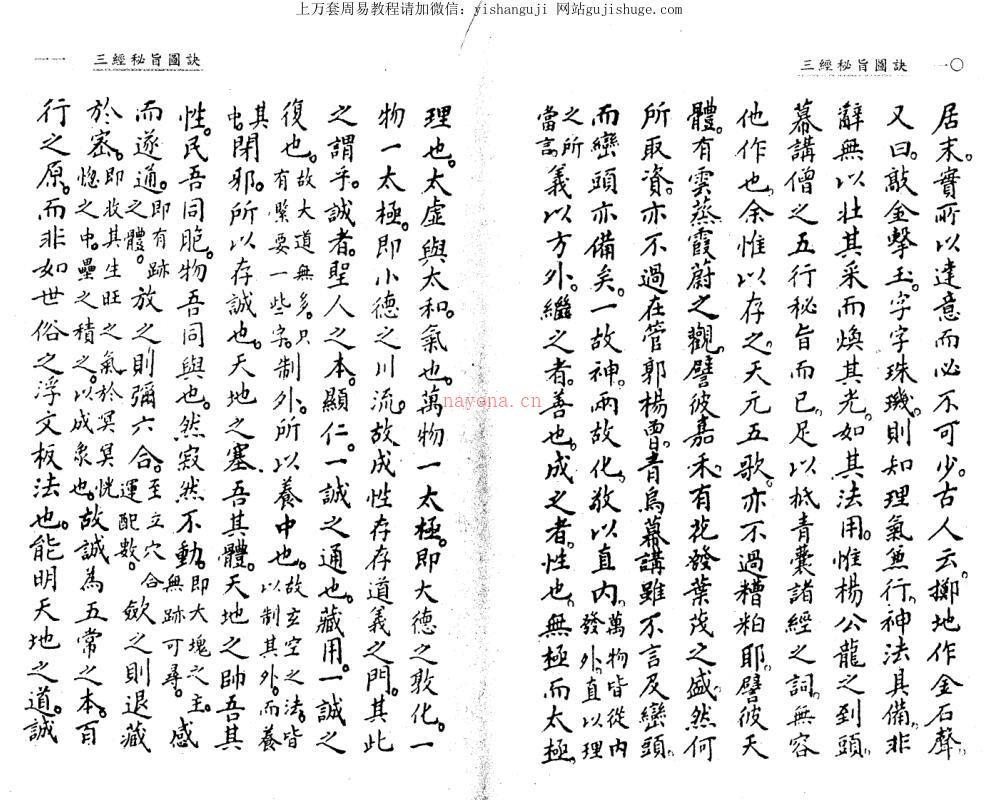 上万套周易教程请加微信：yishanguji 网站gujishuge.com
三經秘旨圖訣 一〇
居末。實所以達意而必不可少。古人云。擲地作金石聲。
又曰。敲金擊玉。字字珠璣。則知理氣兼行。神法具備。非
辭無以壯其采而煥其光。如其法用。惟楊公龍之到頭。
幕講僧之五行秘旨而已。足以祗青囊諸經之詞。無容
他作也。余惟以存之。天元五歌。亦不過糟粕耶。譬彼天
體。有雲蒸霞蔚之觀。譬彼嘉禾。有花發葉茂之盛。然何
所取資。亦不過在管郭楊曾。青烏幕講雖不言及巒頭。
而巒頭亦備矣。一故神。兩故化。敬以直內。萬物皆從內發外。直以理
之所當言。義以方外。繼之者。善也。成之者。性也。無極而太極。
三經秘旨圖訣 一一
理也。太虛與太和。氣也。萬物一太極。即大德之敦化。一
物一太極。即小德之川流。故成性存存。道義之門。其此
之謂乎。誠者。聖人之本。顯仁。一誠之通也。藏用。一誠之
復也。故大道無多。只有緊要一些字。制外。所以養中也。故玄空之法。皆以制其外。而養
其中。閉邪。所以存誠也。天地之塞。吾其體。天地之帥。吾其
性。民吾同胞。物吾同與也。然寂然不動。即大塊之主。無跡可尋。感
而遂通。即有跡之體。放之則彌六合。至立穴合運配數。斂之則退藏
於密。即收其生旺之氣於冥冥恍惚之中。壘之積之。以成象也。故誠為五常之本。百
行之原。而非如世俗之浮文板法也。能明天地之道。誠
nayona.cn